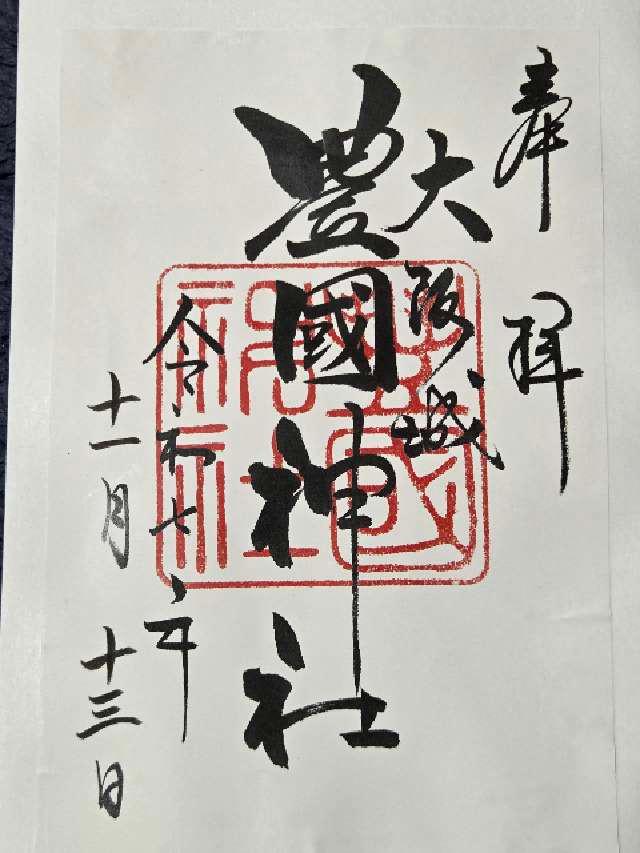 奉拝
大阪城
豊國神社
令和七年
十一月十三日